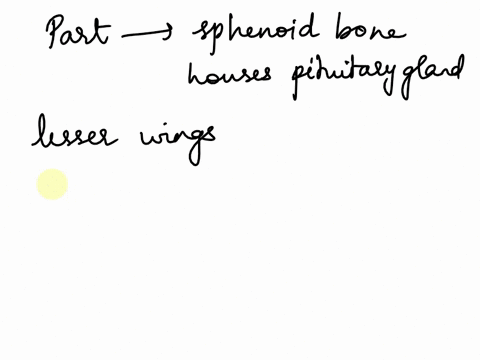 Part → sphenoid bone
houses pituitary gland
lesser wings